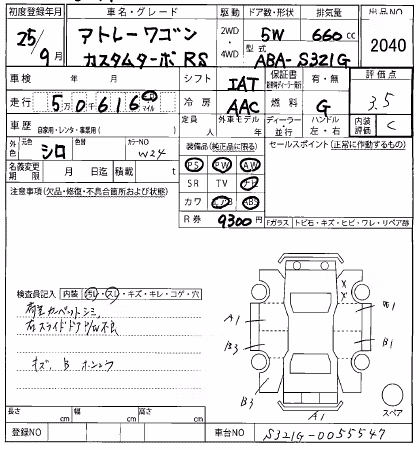 初度登録年月 車名・グレード 駆動 ドア数・形状 排気量 出品NO
25年 9月 アトレーワゴン カスタムターボRS 2WD・4WD 5W 660cc 2040
型式 ABA-S321G
車検 年 月 シフト IAT 保証書 有・無 評価点
走行 5万0千616 km マイル 冷房 AAC 燃料 G 3.5
車歴 自家用・レンタ・事業用( ) 定員 人 外車モデル 年 ディーラー 並行 ハンドル 左・右 内装評価 C
外色 元色 シロ 色替 カラーNO W24 装備品(純正品に限る) セールスポイント(正常に作動するもの)
PS PW AW
名義変更期限 月 日迄 積載 t SR TV ナビ
注意事項(欠品・修復・不具合箇所および状態) カワ エアB ABS
R券 9300円 Fガラス トビ石・キズ・ヒビ・ワレ・リペア部
検査員記入 内装 汚レ・スレ・キズ・キレ・コゲ・穴
荷室カーペットシミ
右スライドドアP/W不良
キズ、B
A1 B3 B3 A1 W1 B1 X X
スペア
長さ cm 幅 cm 高さ cm
登録NO 車台NO S321G-0055547